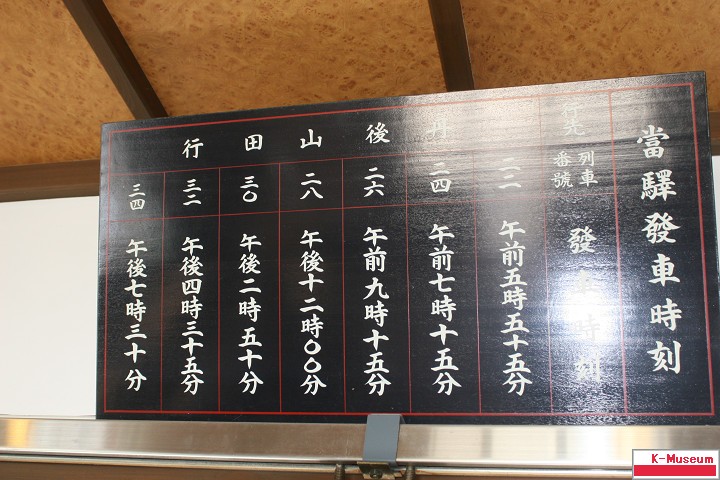 當驛發車時刻
行先
列車番號
發車時刻
丹後山田行
二二
午前五時五十五分
二四
午前七時十五分
二六
午前九時十五分
二八
午後十二時〇〇分
三〇
午後二時五十分
三二
午後四時三十五分
三四
午後七時三十分
K-Museum